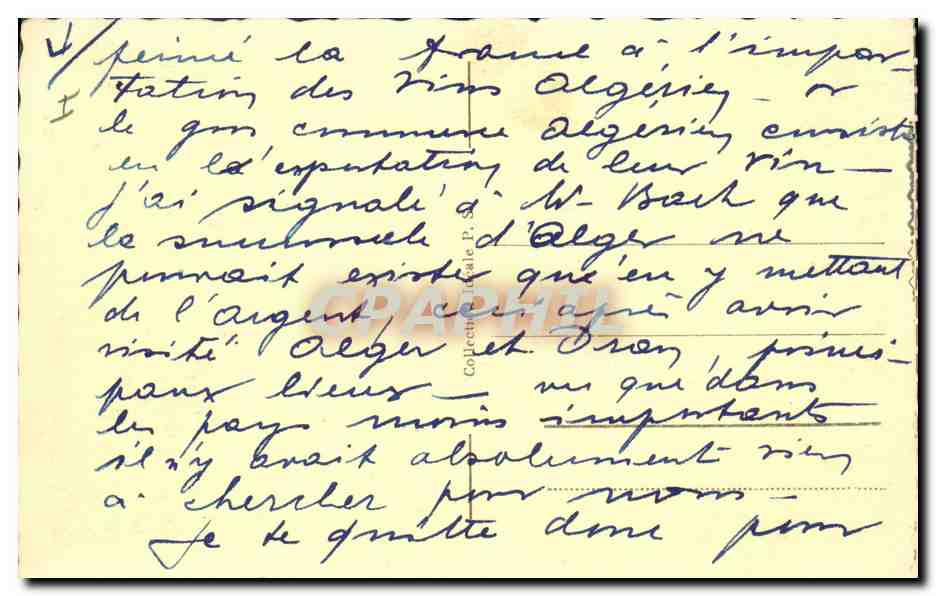 fermé la France à l'impor-
tation des vins Algérien - or
le gros commerce Algérien consiste
en l'exportation de leur vin -
j'ai signalé à Mr Bach que
la succursale d'Alger ne
pouvait exister qu'en y mettant
de l'argent, ceci après avoir
visité Alger et Oran, princi-
paux lieux - vu que dans
les pays moins importants
il n'y avait absolument rien
à chercher pour nous -
Je te quitte donc pour
Collection Idéale P. S.
CPAPHIL